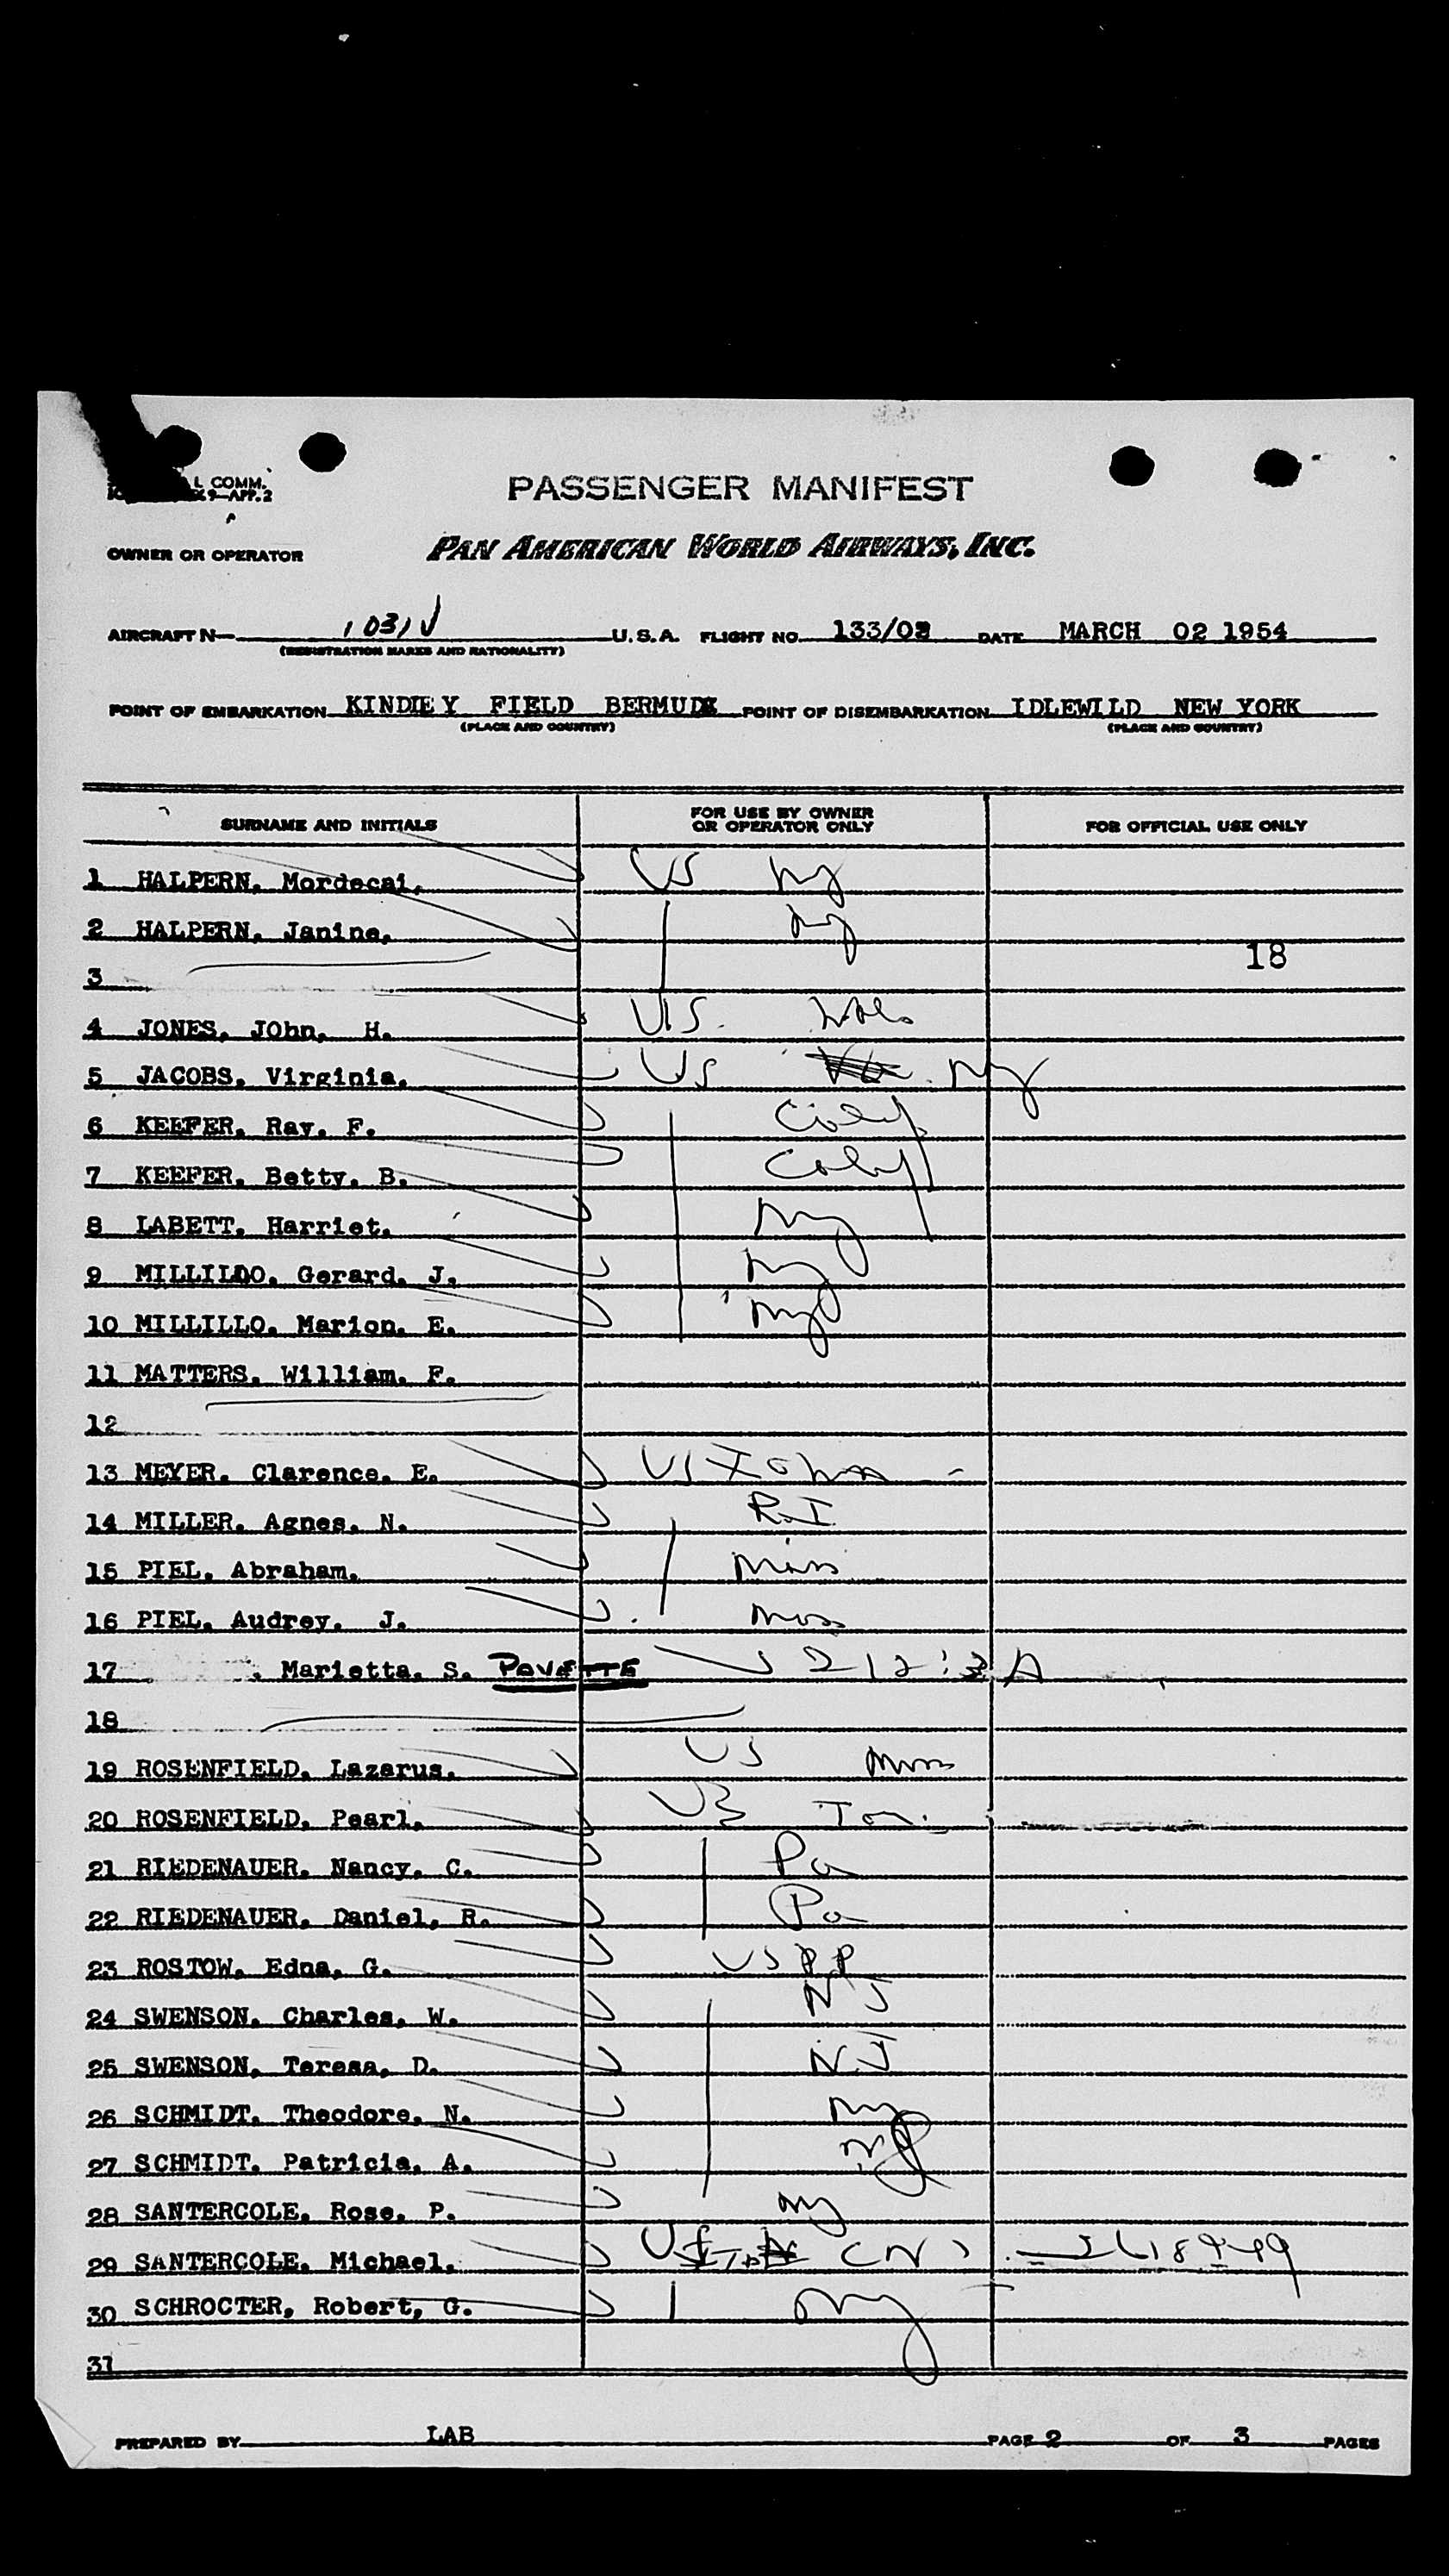 L COMM.
9—APP. 2
PASSENGER MANIFEST
OWNER OR OPERATOR PAN AMERICAN WORLD AIRWAYS, INC.
AIRCRAFT N— 1031V U.S.A. FLIGHT NO. 133/02 DATE MARCH 02 1954
(REGISTRATION MARKS AND NATIONALITY)
POINT OF EMBARKATION KINDLEY FIELD BERMUDA POINT OF DISEMBARKATION IDLEWILD NEW YORK
(PLACE AND COUNTRY) (PLACE AND COUNTRY)
SURNAME AND INITIALS FOR USE BY OWNER OR OPERATOR ONLY FOR OFFICIAL USE ONLY
1 HALPERN, Mordecai, US NY
2 HALPERN, Janine, NY
18
3
4 JONES, JOhn, H. US.
5 JACOBS, Virginia, US NY
6 KEEFER, Ray, F.
7 KEEFER, Betty, B.
8 LABETT, Harriet, NY
9 MILLILDO, Gerard, J. NY
10 MILLILLO, Marion, E. NY
11 MATTERS, William, F.
12
13 MEYER, Clarence, E. US
14 MILLER, Agnes, N. R.I
15 PIEL, Abraham, Mass
16 PIEL, Audrey, J. Mass
17 , Marietta, S. POVETTE 212:3A
18
19 ROSENFIELD, Lazarus, US Mass
20 ROSENFIELD, Pearl, US
21 RIEDENAUER, Nancy, C. Pa
22 RIEDENAUER, Daniel, R. Pa
23 ROSTOW, Edna, G. US PP
24 SWENSON, Charles, W. NJ
25 SWENSON, Teresa, D. NJ
26 SCHMIDT, Theodore, N. NY
27 SCHMIDT, Patricia, A. NY
28 SANTERCOLE, Rose, P. NY
29 SANTERCOLE, Michael, US CN
30 SCHROCTER, Robert, G. NY
31
PREPARED BY LAB PAGE 2 OF 3 PAGES